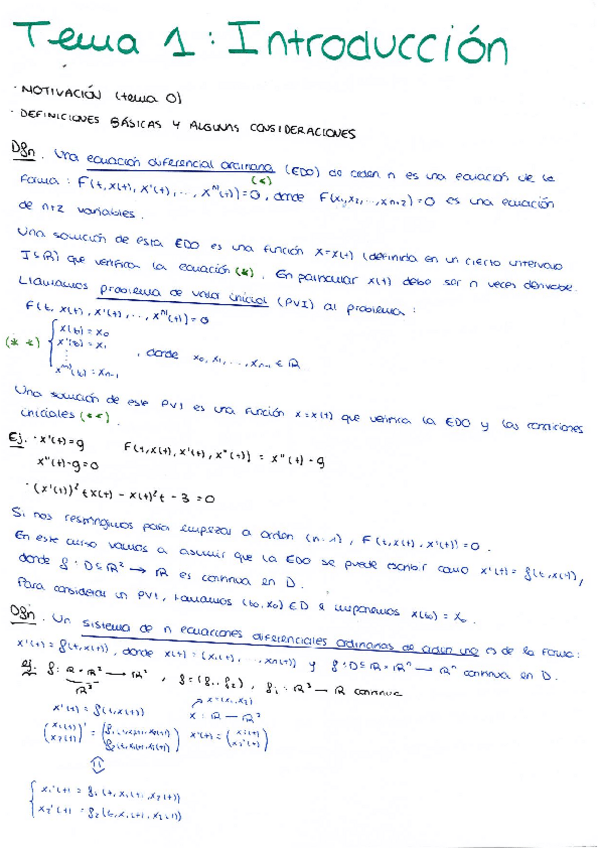 Tema 1: Introducción
· MOTIVACIÓN (tema 0)
· DEFINICIONES BÁSICAS Y ALGUNAS CONSIDERACIONES
Dfn. Una ecuación diferencial ordinaria (EDO) de orden n es una ecuación de la
forma: F(t, x(t), x'(t), ..., xⁿ⁾(t))=0, donde F(x₁,x₂,...,xn+2)=0 es una ecuación
(*)
de n+2 variables.
Una solución de esta EDO es una función x=x(t) (definida en un cierto intervalo
I⊆ℝ) que verifica la ecuación (*). En particular x(t) debe ser n veces derivable.
Llamamos problema de valor inicial (PVI) al problema:
F(t, x(t), x'(t), ..., xⁿ⁾(t))=0
(**) { x(t₀) = x₀
x'(t₀) = x₁
⋮ , donde x₀, x₁, ..., xn-1 ∈ ℝ.
xⁿ⁻¹⁾(t₀) = xn-1
Una solución de este PVI es una función x=x(t) que verifica la EDO y las condiciones
iniciales (**).
Ej. · x''(t)=g F(t,x(t),x'(t),x''(t)) = x''(t)-g
x''(t)-g=0
· (x'(t))² t x(t) - x(t)² t - 3 = 0
Si nos restringimos para empezar a orden (n=1), F(t,x(t),x'(t))=0.
En este curso vamos a asumir que la EDO se puede escribir como x'(t)=f(t,x(t)),
donde f: D⊆ℝ² → ℝ es continua en D.
Para considerar un PVI, tomamos (t₀,x₀)∈D e imponemos x(t₀)=x₀.
Dfn. Un sistema de n ecuaciones diferenciales ordinarias de orden uno es de la forma:
x'(t)=f(t,x(t)), donde x(t)=(x₁(t), ..., xn(t)) y f: D⊆ℝ×ℝⁿ → ℝⁿ continua en D.
ej. f: ℝ×ℝ² → ℝ², f=(f₁,f₂), fᵢ: ℝ³ → ℝ continua
ℝ³
x=(x₁,x₂)
x'(t) = f(t,x(t)) x: ℝ → ℝ²
(x₁(t) x₂(t))' = (f₁(t,x₁(t),x₂(t)) f₂(t,x₁(t),x₂(t))) x'(t)=(x₁'(t) x₂'(t))
⇕
{ x₁'(t) = f₁(t,x₁(t),x₂(t))
x₂'(t) = f₂(t,x₁(t),x₂(t))